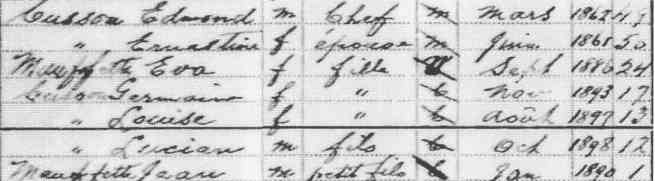 Cusson Edmond m Chef m Mars 1862 49
" Ernestine f épouse m Juin 1861 50
Mauffette Eva f fille V Sept 1886 24
Cusson Germaine f " C Nov 1893 17
" Louise f " C Août 1897 13
" Lucian m fils C Oct 1898 12
Mauffette Jean m petit fils C Jan 1890 1